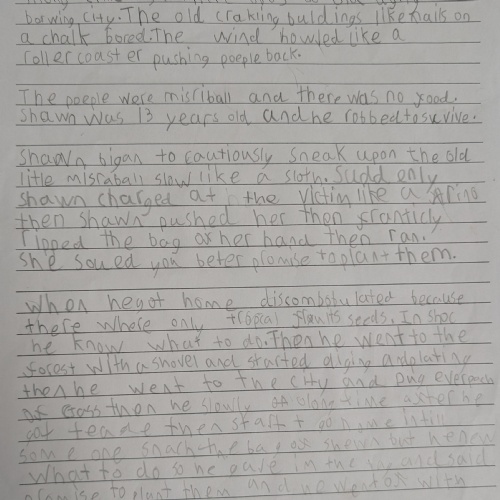 borwing city. The old crakling buldings like nails on
a chalk bored. The wind howled like a
roller coaster pushing poeple back.
The poeple were misriball and there was no food.
Shawn was 13 years old and he robbed to suvive.
Shawn bigan to cautiously sneak upon the old
litle misraball slow like a sloth. Sudd enly
shawn charged at the victim like a
then shawn pushed her then franticly
ripped the bag of her hand then ran.
She soued you beter promise to plant them.
When he got home discombobulated because
there where only tropical plants seeds. In shoc
he know what to do. Then he went to the
forest with a shovel and started diging and plating
then he went to the city and
of then he slowly a long time after he
got then start t go home intill
some one snach the bag of shawn but he now
what to do so he gave in the and said
promise to plant them and he went of with